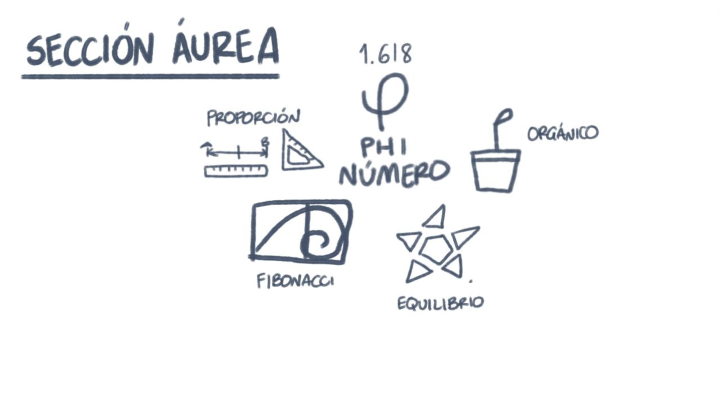 SECCIÓN ÁUREA
1.618
φ
PHI
NÚMERO
PROPORCIÓN
A B
ORGÁNICO
FIBONACCI
EQUILIBRIO